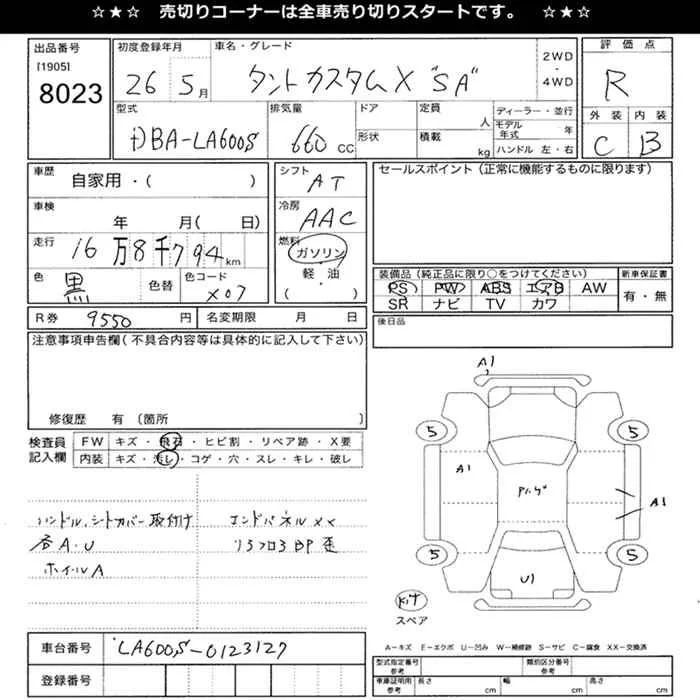 ☆★☆ 売切りコーナーは全車売り切りスタートです。 ☆★☆
出品番号
[1905]
8023
初度登録年月
26年5月
車名・グレード
タントカスタムX "SA"
2WD
・
4WD
評価点
R
外装 内装
C B
型式
DBA-LA600S
排気量
660 CC
ドア
形状
定員
人
積載
kg
ディーラー・並行
モデル年式 年
ハンドル 左・右
車歴
自家用・( )
車検
年 月( 日)
走行
16万8千794km
色
黒
色替
色コード
X07
シフト
AT
冷房
AAC
燃料
ガソリン
軽・油
( )
セールスポイント(正常に機能するものに限ります)
装備品(純正品に限り○をつけてください)
PS PW ABS エアB AW
SR ナビ TV カワ
新車保証書
有・無
R券 9550円
名変期限 月 日
後日品
注意事項申告欄(不具合内容等は具体的に記入して下さい)
修復歴 有(箇所 )
検査員記入欄
FW キズ・飛石・ヒビ割・リペア跡・X要
内装 キズ・汚レ・コゲ・穴・スレ・キレ・破レ
ハンドル、シートカバー取付け
各A・U
ホイルA
エンドパネルXX
リヤフロアBP歪
A1
5 5
A1
A1
5 5
U1
Kit
スペア
A－キズ E－エクボ U－凹み W－補修跡 S－サビ C－腐食 XX－交換済
車台番号
LA600S-0123127
登録番号
型式指定番号 参考
類別区分番号 参考
車庫証明用 参考
長さ cm
幅 cm
高さ cm